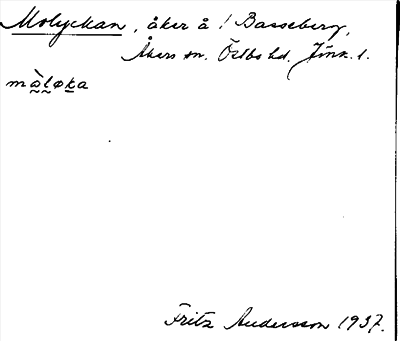 Molyckan, åker å 1 Basseberg,
Åkers sn. Östbo hd. Jönk. l.
Fritz Andersson 1937.